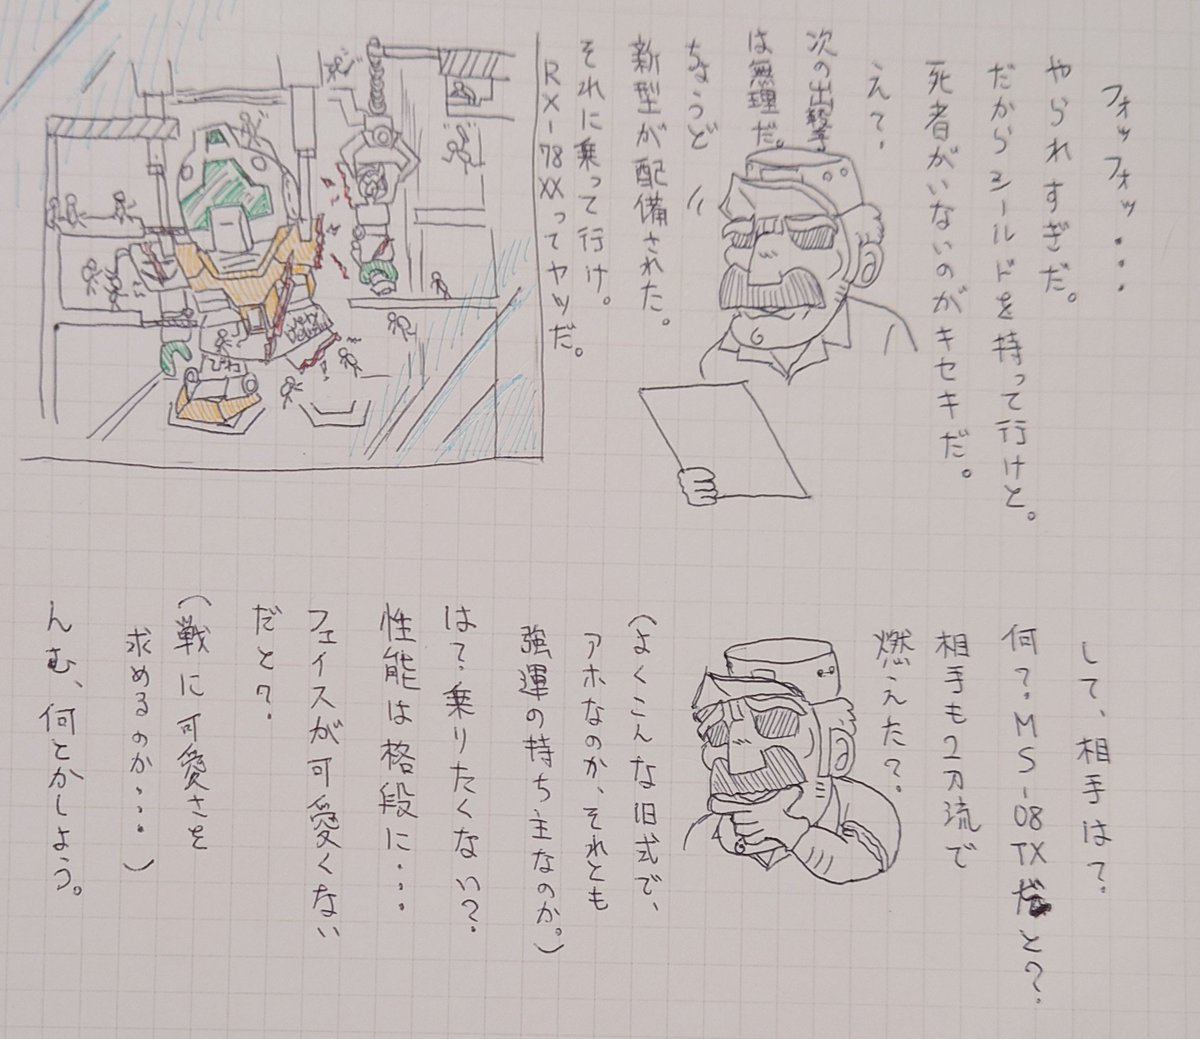 フォッフォッ・・・
やられすぎだ。
だからシールドを持って行けと。
死者がいないのがキセキだ。
え?
次の出撃
は無理だ。
ちょうど
新型が配備された。
それに乗って行け。
RX-78
XXってヤツだ。
して、相手は?
何?MS-08TXだと?
相手も2刀流で
燃えた?
(よくこんな旧式で、
アホなのか、それとも
強運の持ち主なのか。)
は?乗りたくない?
性能は格段に・・・
フェイスが可愛くない
だと?
(戦に可愛さを
求めるのか・・・)
んむ、何とかしよう。